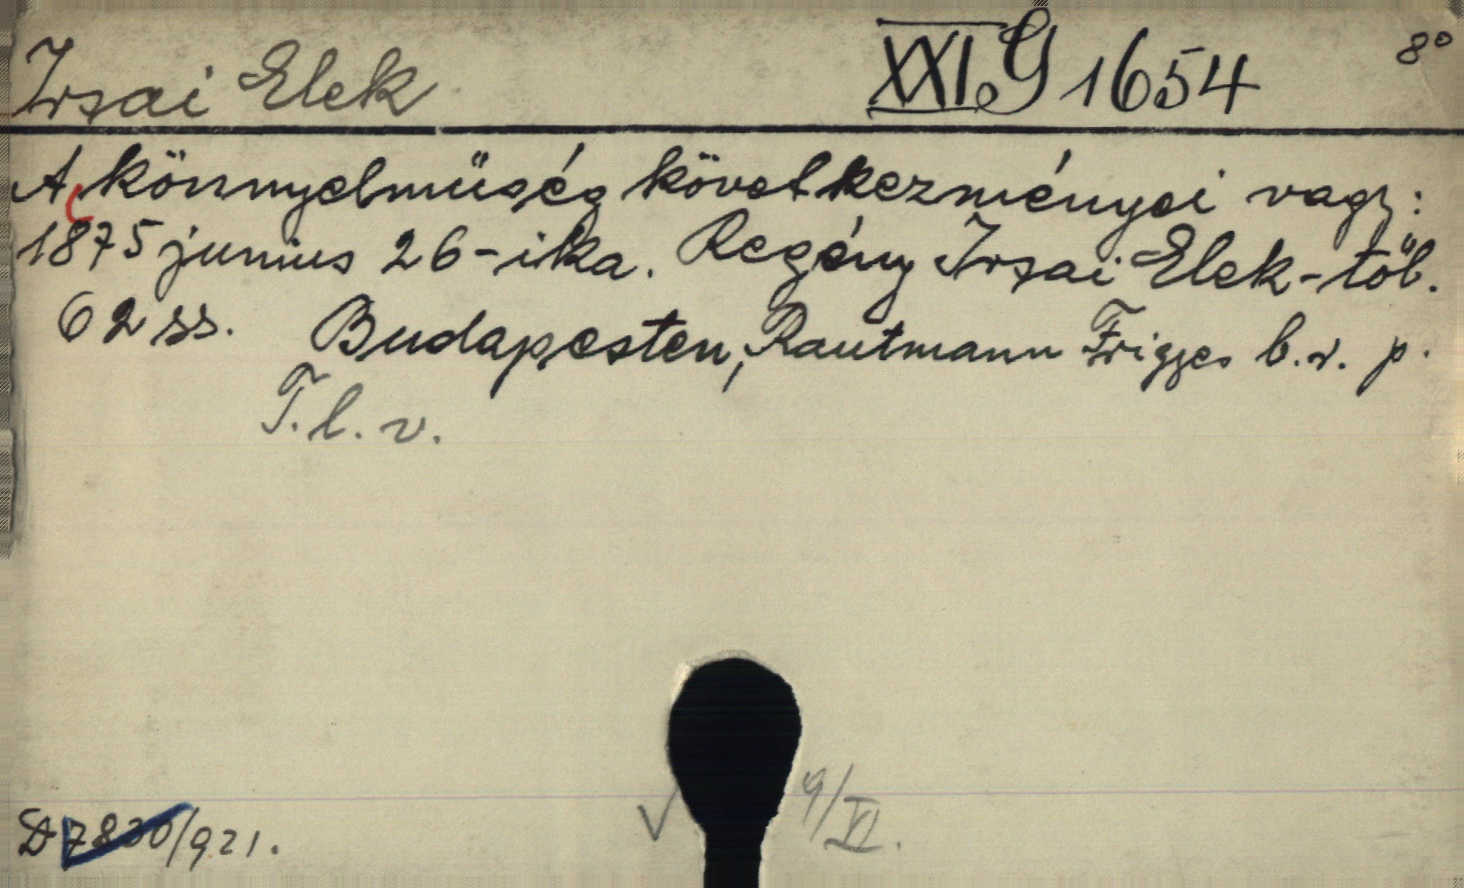 Irsai Elek XXI. G 1654 8°
A könnyelmüség következményei vagy:
1875 junius 26-ika. Regény Irsai Elek-töl.
62 ss. Budapesten, Rautmann Frigyes b. r. p.
T. l. v.
D 7830/921. √ 9/XI.